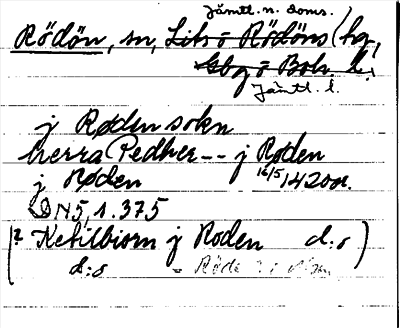 Jämtl. n. doms.
Rödön, sn, Lits o Rödöns hg,
Gbg o Boh. l.
Jämtl. l.
j Røden sokn
herra Pedher -- j Røden
j Røden 16/5 1420 or.
DN 5, 1. 375
(? Ketilbiorn j Roden d:o)
d:o